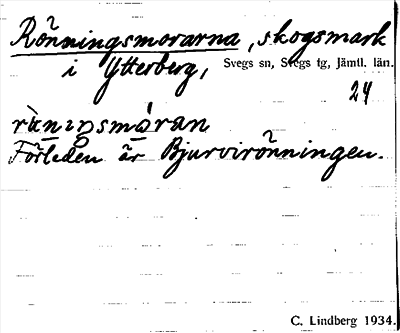 Rönningsmorarna, skogsmark
i Ytterberg, Svegs sn, Svegs tg, Jämtl. län.
24
Förleden är Bjurvirönningen.
C. Lindberg 1934.